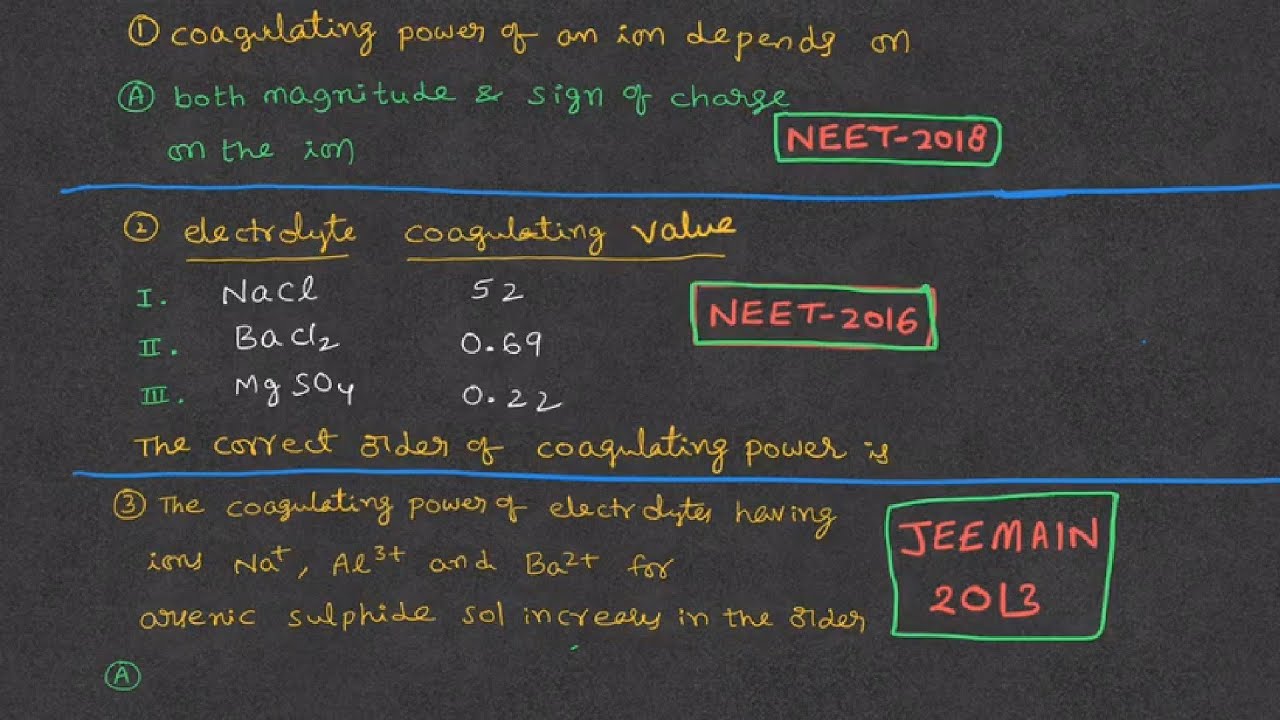 ① coagulating power of an ion depends on
Ⓐ both magnitude & sign of charge
on the ion
NEET-2018
② electrolyte coagulating value
I. NaCl 52
II. BaCl₂ 0.69
III. MgSO₄ 0.22
NEET-2016
The correct order of coagulating power is
③ The coagulating power of electrolytes having
ions Na⁺, Al³⁺ and Ba²⁺ for
arsenic sulphide sol increases in the order
JEEMAIN
2013
Ⓐ